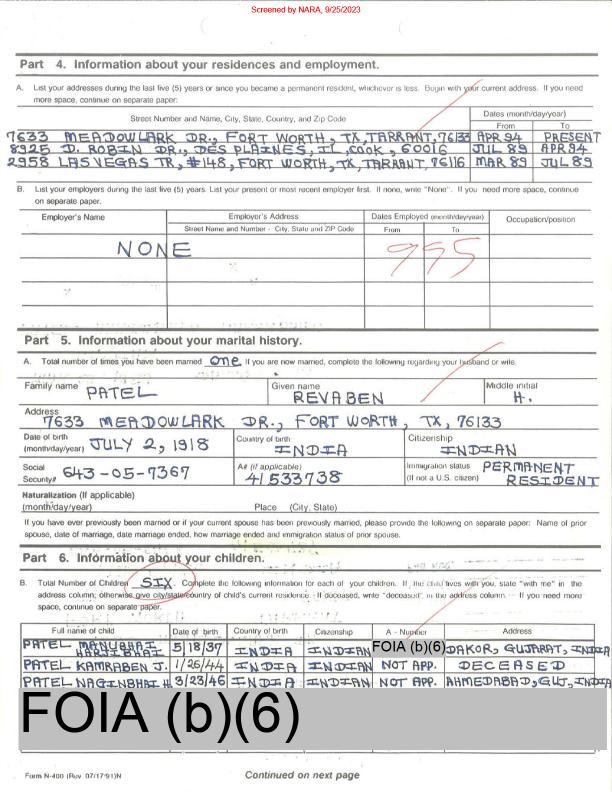 Screened by NARA, 9/25/2023
Part 4. Information about your residences and employment.
A. List your addresses during the last five (5) years or since you became a permanent resident, whichever is less. Begin with your current address. If you need
more space, continue on separate paper:
Street Number and Name, City, State, Country, and Zip Code
Dates (month/day/year)
From To
7633 MEADOWLARK DR., FORT WORTH, TX, TARRANT, 76133 APR 94 PRESENT
8925 D. ROBIN DR., DES PLAINES, IL, COOK, 60016 JUL 89 APR 94
2958 LAS VEGAS TR, #148, FORT WORTH, TX, TARRANT, 76116 MAR 89 JUL 89
B. List your employers during the last five (5) years. List your present or most recent employer first. If none, write "None". If you need more space, continue
on separate paper.
Employer's Name Employer's Address Dates Employed (month/day/year) Occupation/position
Street Name and Number - City, State and ZIP Code From To
NONE 995
Part 5. Information about your marital history.
A. Total number of times you have been married one. If you are now married, complete the following regarding your husband or wife.
Family name PATEL Given name REVABEN Middle initial H.
Address 7633 MEADOWLARK DR., FORT WORTH, TX, 76133
Date of birth (month/day/year) JULY 2, 1918 Country of birth INDIA Citizenship INDIAN
Social Security# 643-05-7367 A# (if applicable) 41533738 Immigration status (If not a U.S. citizen) PERMANENT RESIDENT
Naturalization (If applicable)
(month/day/year) Place (City, State)
If you have ever previously been married or if your current spouse has been previously married, please provide the following on separate paper: Name of prior
spouse, date of marriage, date marriage ended, how marriage ended and immigration status of prior spouse.
Part 6. Information about your children.
B. Total Number of Children SIX. Complete the following information for each of your children. If the child lives with you, state "with me" in the
address column; otherwise give city/state/country of child's current residence. If deceased, write "deceased" in the address column. If you need more
space, continue on separate paper.
Full name of child Date of birth Country of birth Citizenship A - Number Address
PATEL MANUBHAI HARJIBHAI 5/18/37 INDIA INDIAN FOIA (b)(6) DAKOR, GUJARAT, INDIA
PATEL KAMRABEN J. 1/26/44 INDIA INDIAN NOT APP. DECEASED
PATEL NAGINBHAI H 3/23/46 INDIA INDIAN NOT APP. AHMEDABAD, GUJ, INDIA
FOIA (b)(6)
Form N-400 (Rev. 07/17/91)N Continued on next page